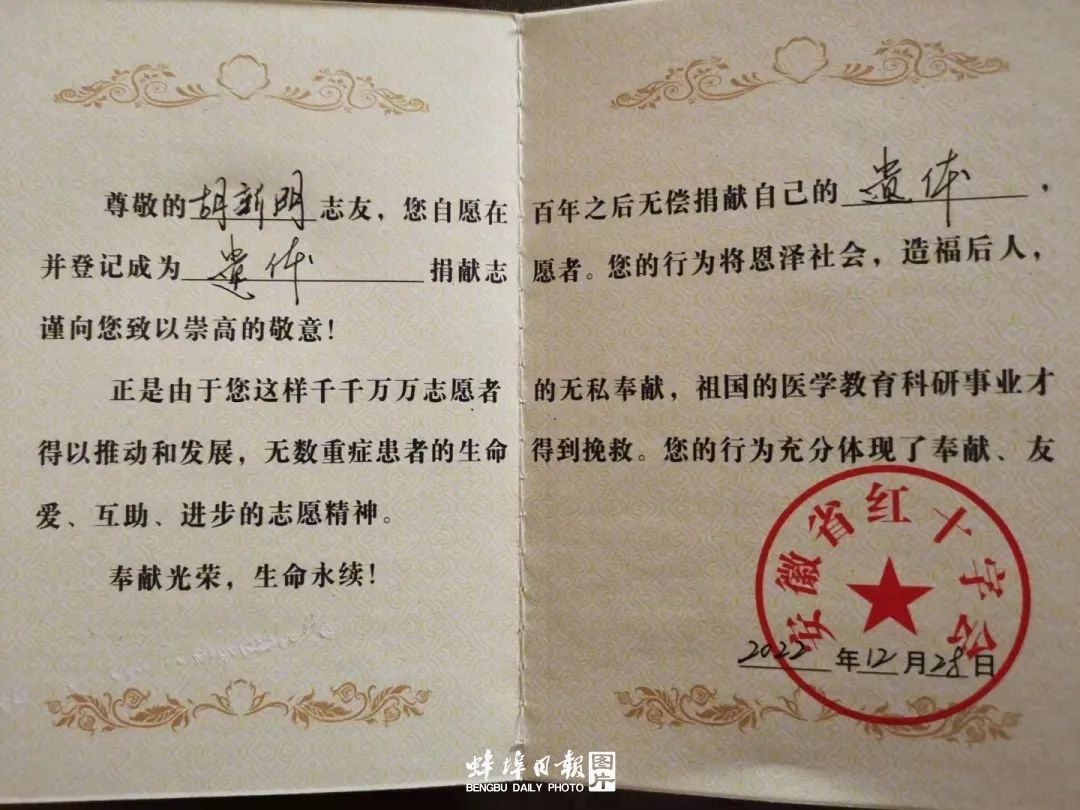 尊敬的胡新明志友，您自愿在百年之后无偿捐献自己的遗体，
并登记成为遗体捐献志愿者。您的行为将恩泽社会，造福后人，
谨向您致以崇高的敬意！
正是由于您这样千千万万志愿者的无私奉献，祖国的医学教育科研事业才
得以推动和发展，无数重症患者的生命得到挽救。您的行为充分体现了奉献、友
爱、互助、进步的志愿精神。
奉献光荣，生命永续！
安徽省红十字会
2022年12月28日
蚌埠日报图片
BENGBU DAILY PHOTO